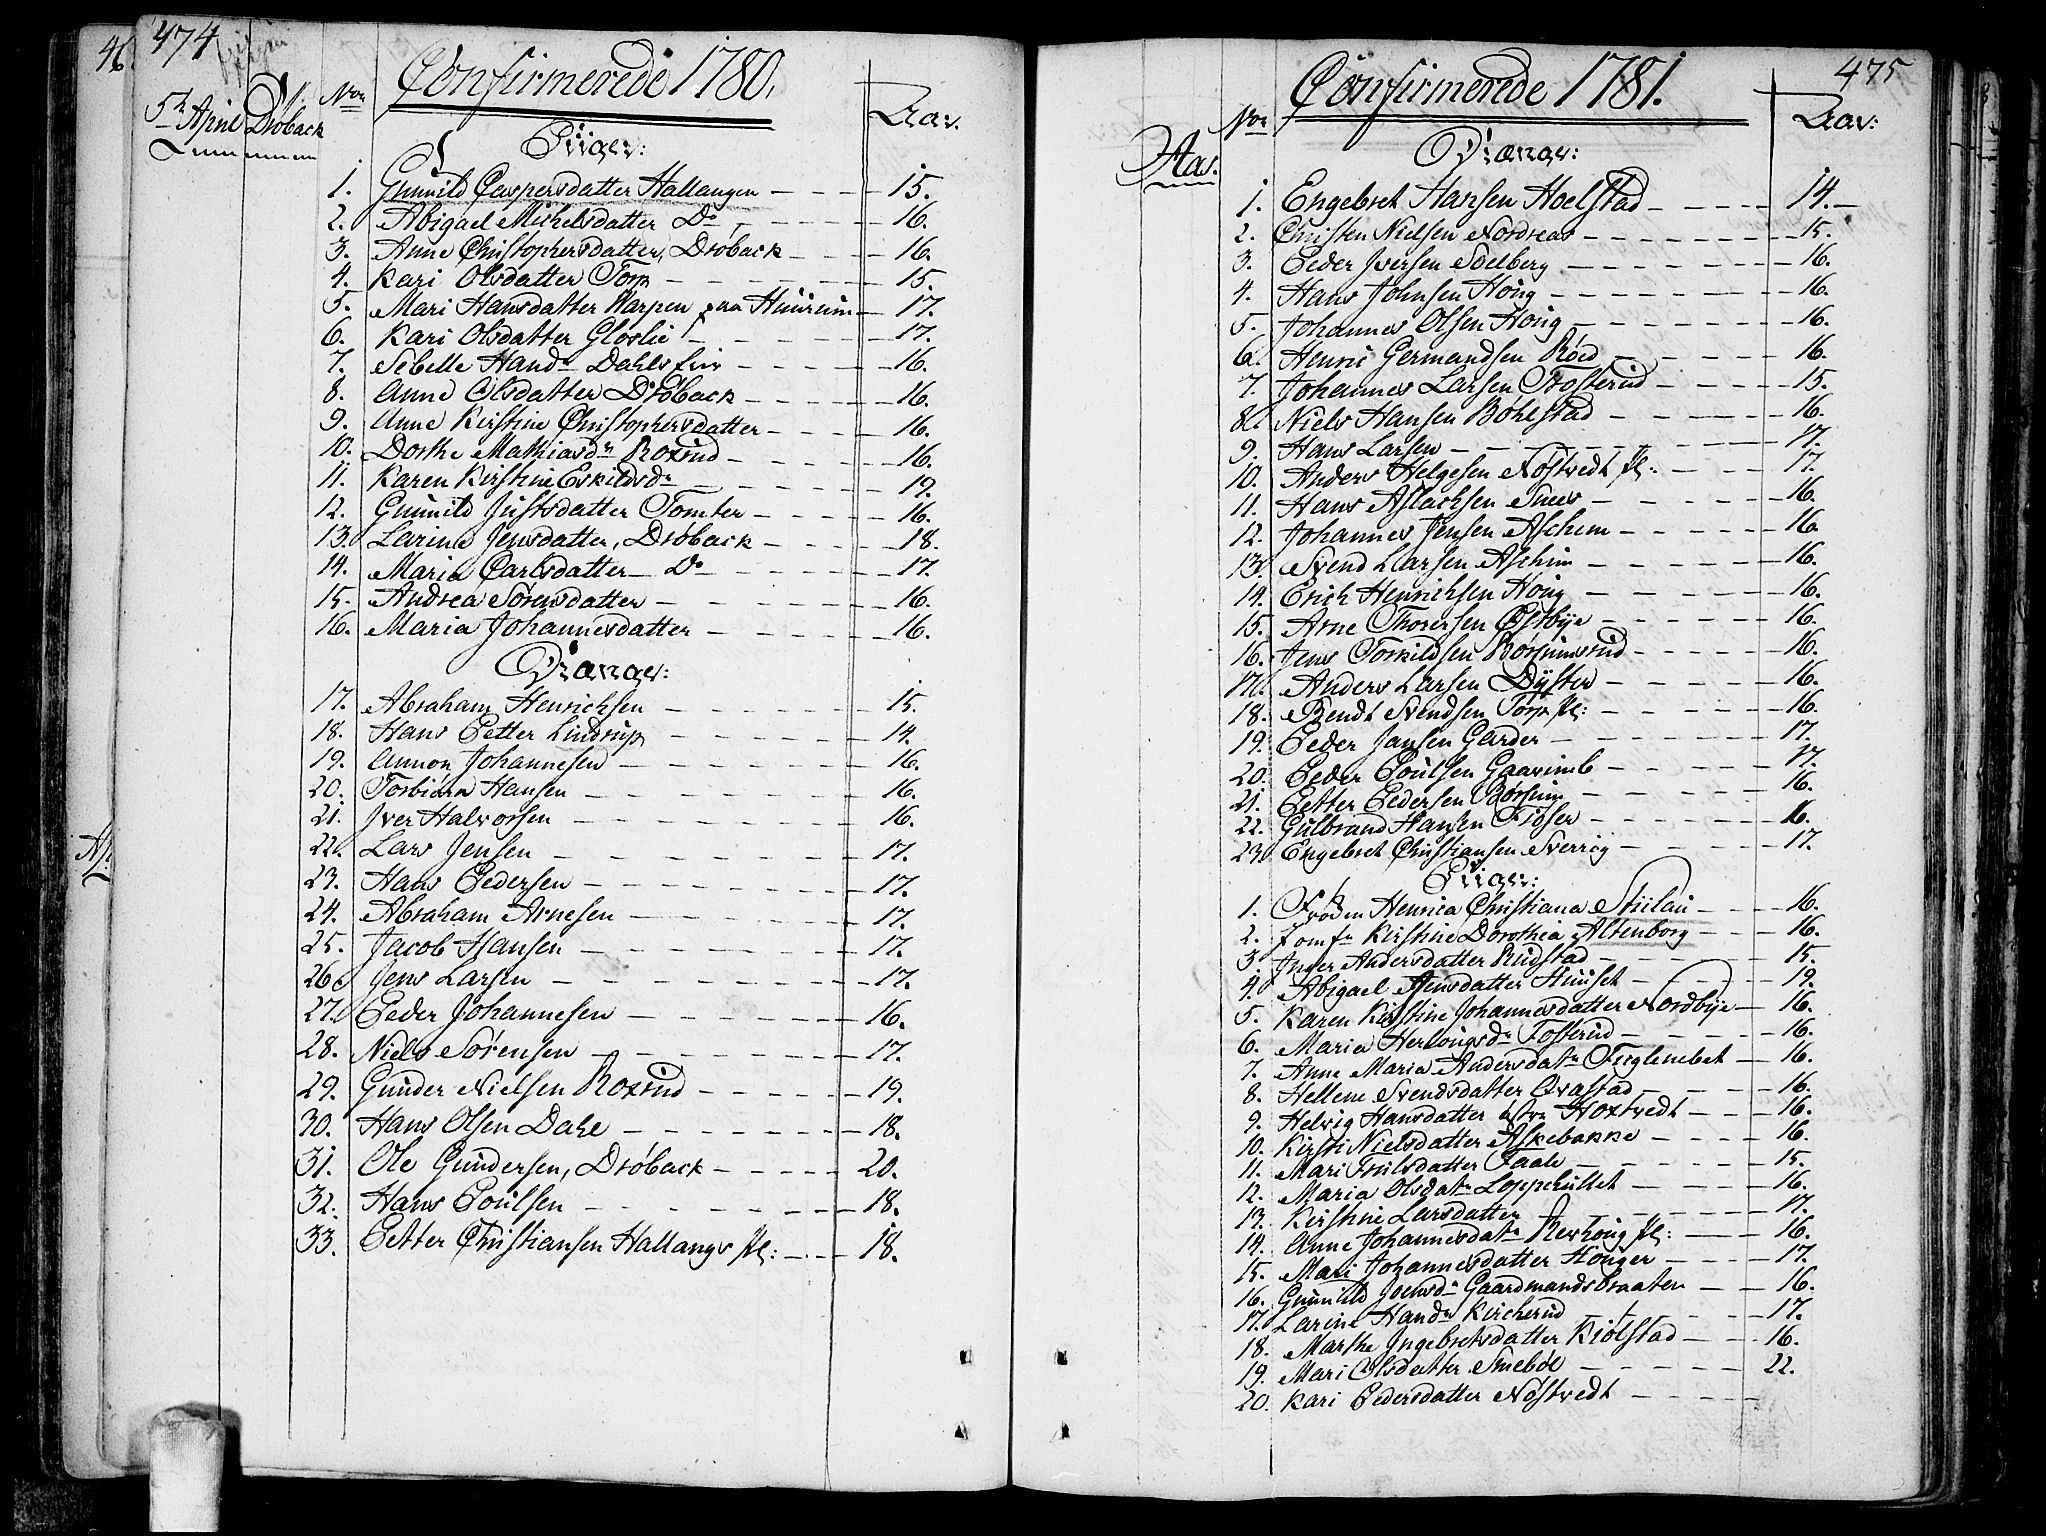 474
5te April Drøback
No
Confirmerede 1780.
Aar.
Piiger:
1. Gunnild Caspersdatter Hallangen 15.
2. Abigael Michelsdatter Do 16.
3. Anne Christophersdatter, Drøback 16.
4. Kari Olsdatter Torp 15.
5. Mari Hansdatter Warpen paa Huusum 17.
6. Kari Olsdatter Gloslie 17.
7. Sebelle Handr Dahls Eier 16.
8. Anne Olsdatter Drøback 16.
9. Anne Kirstine Christophersdatter 16.
10. Dorthe Mathiasdr Roxrud 16.
11. Karen Kirstine Eskildsdr 19.
12. Gunnild Justsdatter Tomter 16.
13. Larine Jensdatter, Drøback 18.
14. Maria Carlsdatter Do 17.
15. Andrea Sørensdatter 16.
16. Maria Johannesdatter 16.
Drænge:
17. Abraham Henrichsen 15.
18. Hans Petter Lindrup 14.
19. Annon Johannesen 16.
20. Torbiørn Hansen 16.
21. Iver Halvorsen 16.
22. Lars Jensen 17.
23. Hans Pedersen 17.
24. Abraham Arnesen 17.
25. Jacob Hansen 17.
26. Jens Larsen 17.
27. Peder Johannesen 16.
28. Niels Sørensen 17.
29. Gunder Nielsen Roxrud 19.
30. Hans Olsen Dahl 18.
31. Ole Gundersen, Drøback 20.
32. Hans Poulsen 18.
33. Petter Christiansen Hallangs pl: 18.
475
Aas.
No
Confirmerede 1781.
Aar:
Drænge:
1. Engebret Hansen Hoelstad 14.
2. Christen Nielsen Nordreas 15.
3. Peder Iversen Solberg 16.
4. Hans Johnsen Houg 16.
5. Johannes Olsen Houg 16.
6. Henric Germandsen Røed 16.
7. Johannes Larsen Trosterud 15.
8. Niels Hansen Bøhlstad 16.
9. Hans Larsen 17.
10. Anders Helgesen Nøstvedt pl: 17.
11. Hans Aslachsen Snees 16.
12. Johannes Jensen Aschem 16.
13. Svend Larsen Aschim 16.
14. Erich Henrichsen Houg 16.
15. Arne Thorersen Østbye 16.
16. Jens Torkildsen Børsumsrud 16.
17. Anders Larsen Dyster 16.
18. Bendt Svendsen Torp pl: 16.
19. Peder Jansen Garder 17.
20. Peder Poulsen Gaarumb 17.
21. Petter Pedersen Børsum 16.
22. Gulbrand Hansen Fioser 16.
23. Engebret Christiansen Sverrig 17.
Piiger:
1. Frøken Henrica Christiana Stülau 16.
2. Jomfr Kirstine Dorothea Altenborg 16.
3. Inger Andersdatter Rudstad 15.
4. Abigael Jensdatter Huuset 19.
5. Karen Kirstine Johannesdatter Nordbye 16.
6. Maria Herlougsdr Tosterud 16.
7. Anne Maria Andersdatr Fuglenebet 16.
8. Hellene Svendsdatter Qvastad 16.
9. Helvig Hansdatter østre Hoxtvedt 16.
10. Kirsti Nielsdatter Askebakke 16.
11. Mari Truulsdatter Faale 15.
12. Maria Olsdatr Loppehullet 16.
13. Kirstine Larsdatter 17.
14. Anne Johannesdatr Revhoug pl: 16.
15. Mari Johannesdatter Houger 17.
16. Gunnild Joensdr Gaardmandsbraaten 16.
17. Larine Handr Kircherud 17.
18. Marthe Ingebretsdatter Kiølstad 16.
19. Mari Olsdatter Smebøl 22.
20. Kari Pedersdatter Nøstvedt